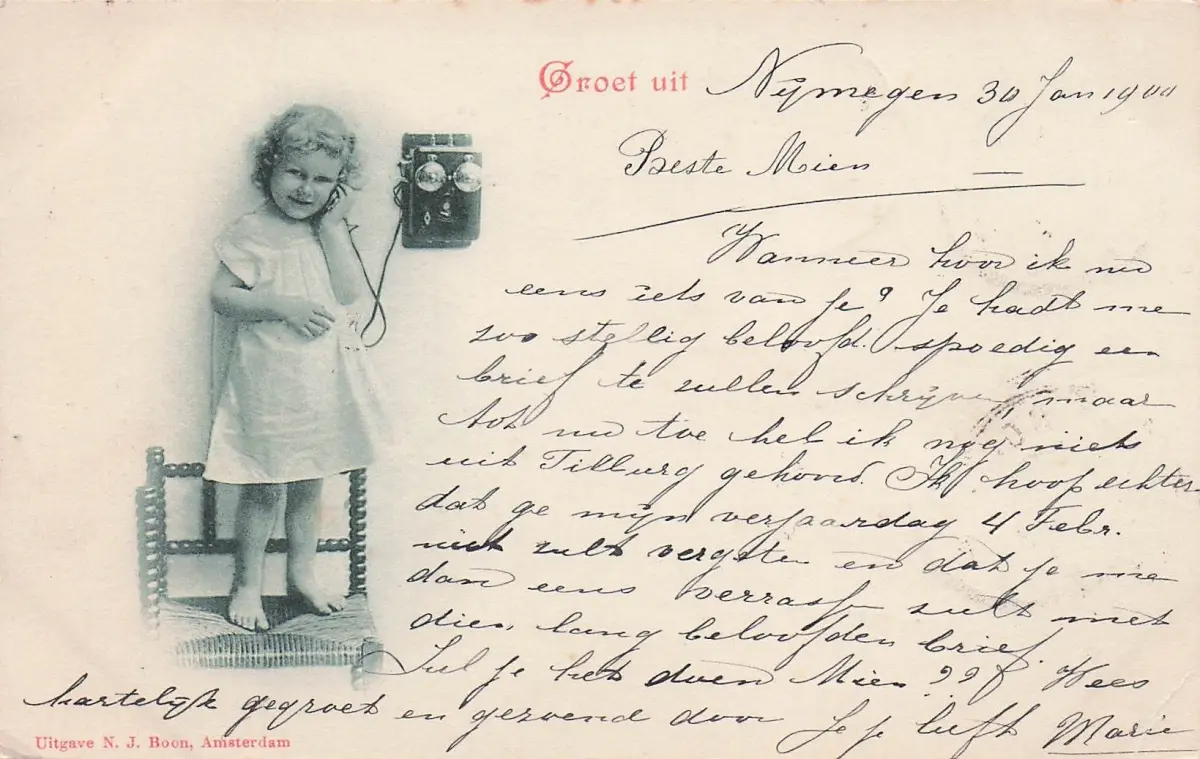 Groet uit Nijmegen 30 Jan 1900
Beste Mien
Wanneer hoor ik nu
eens iets van je? Je hadt me
zoo stellig beloofd spoedig een
brief te zullen schrijven, maar
tot nu toe heb ik nog niets
uit Tilburg gehoord. Ik hoop echter
dat ge mijn verjaardag 4 Febr.
niet zult vergeten en dat je me
dan eens verrassen zult met
dien lang beloofden brief.
Zul je het doen Mien?? Wees
hartelijk gegroet en gezoend door Je je liefh. Marie
Uitgave N. J. Boon, Amsterdam